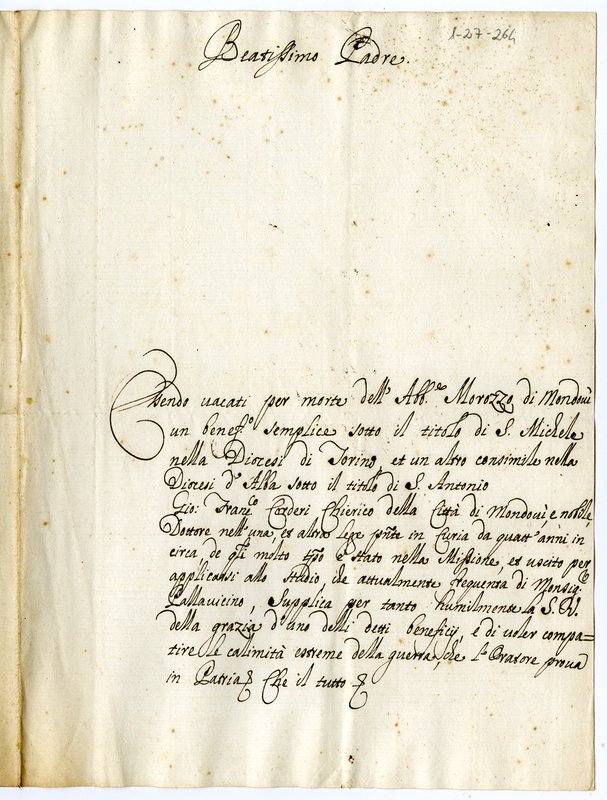 1-27-264
Beatissimo Padre.
Essendo vacati per morte dell' Abb.e Morozzo di Mondovì
un benef.o semplice sotto il titolo di S. Michele
nella Diocesi di Torino, et un altro consimile nella
Diocesi d'Alba sotto il titolo di S. Antonio
Gio: Fran.co Corderi Chierico della Città di Mondovì, e nobile,
Dottore nell'una, et altra lege pñte in Curia da quatt'anni in
circa, de q̃li molto tp̃o è stato nella Missione, et uscito per
applicarsi allo studio, che attualmente frequenta di Monsig.r
Pallavicino, supplica per tanto humilmente la S. V.
della grazia d'uno delli detti beneficij, e di voler compa=
tire le calimità estreme della guerra, che l'Oratore prova
in Patria Che il tutto